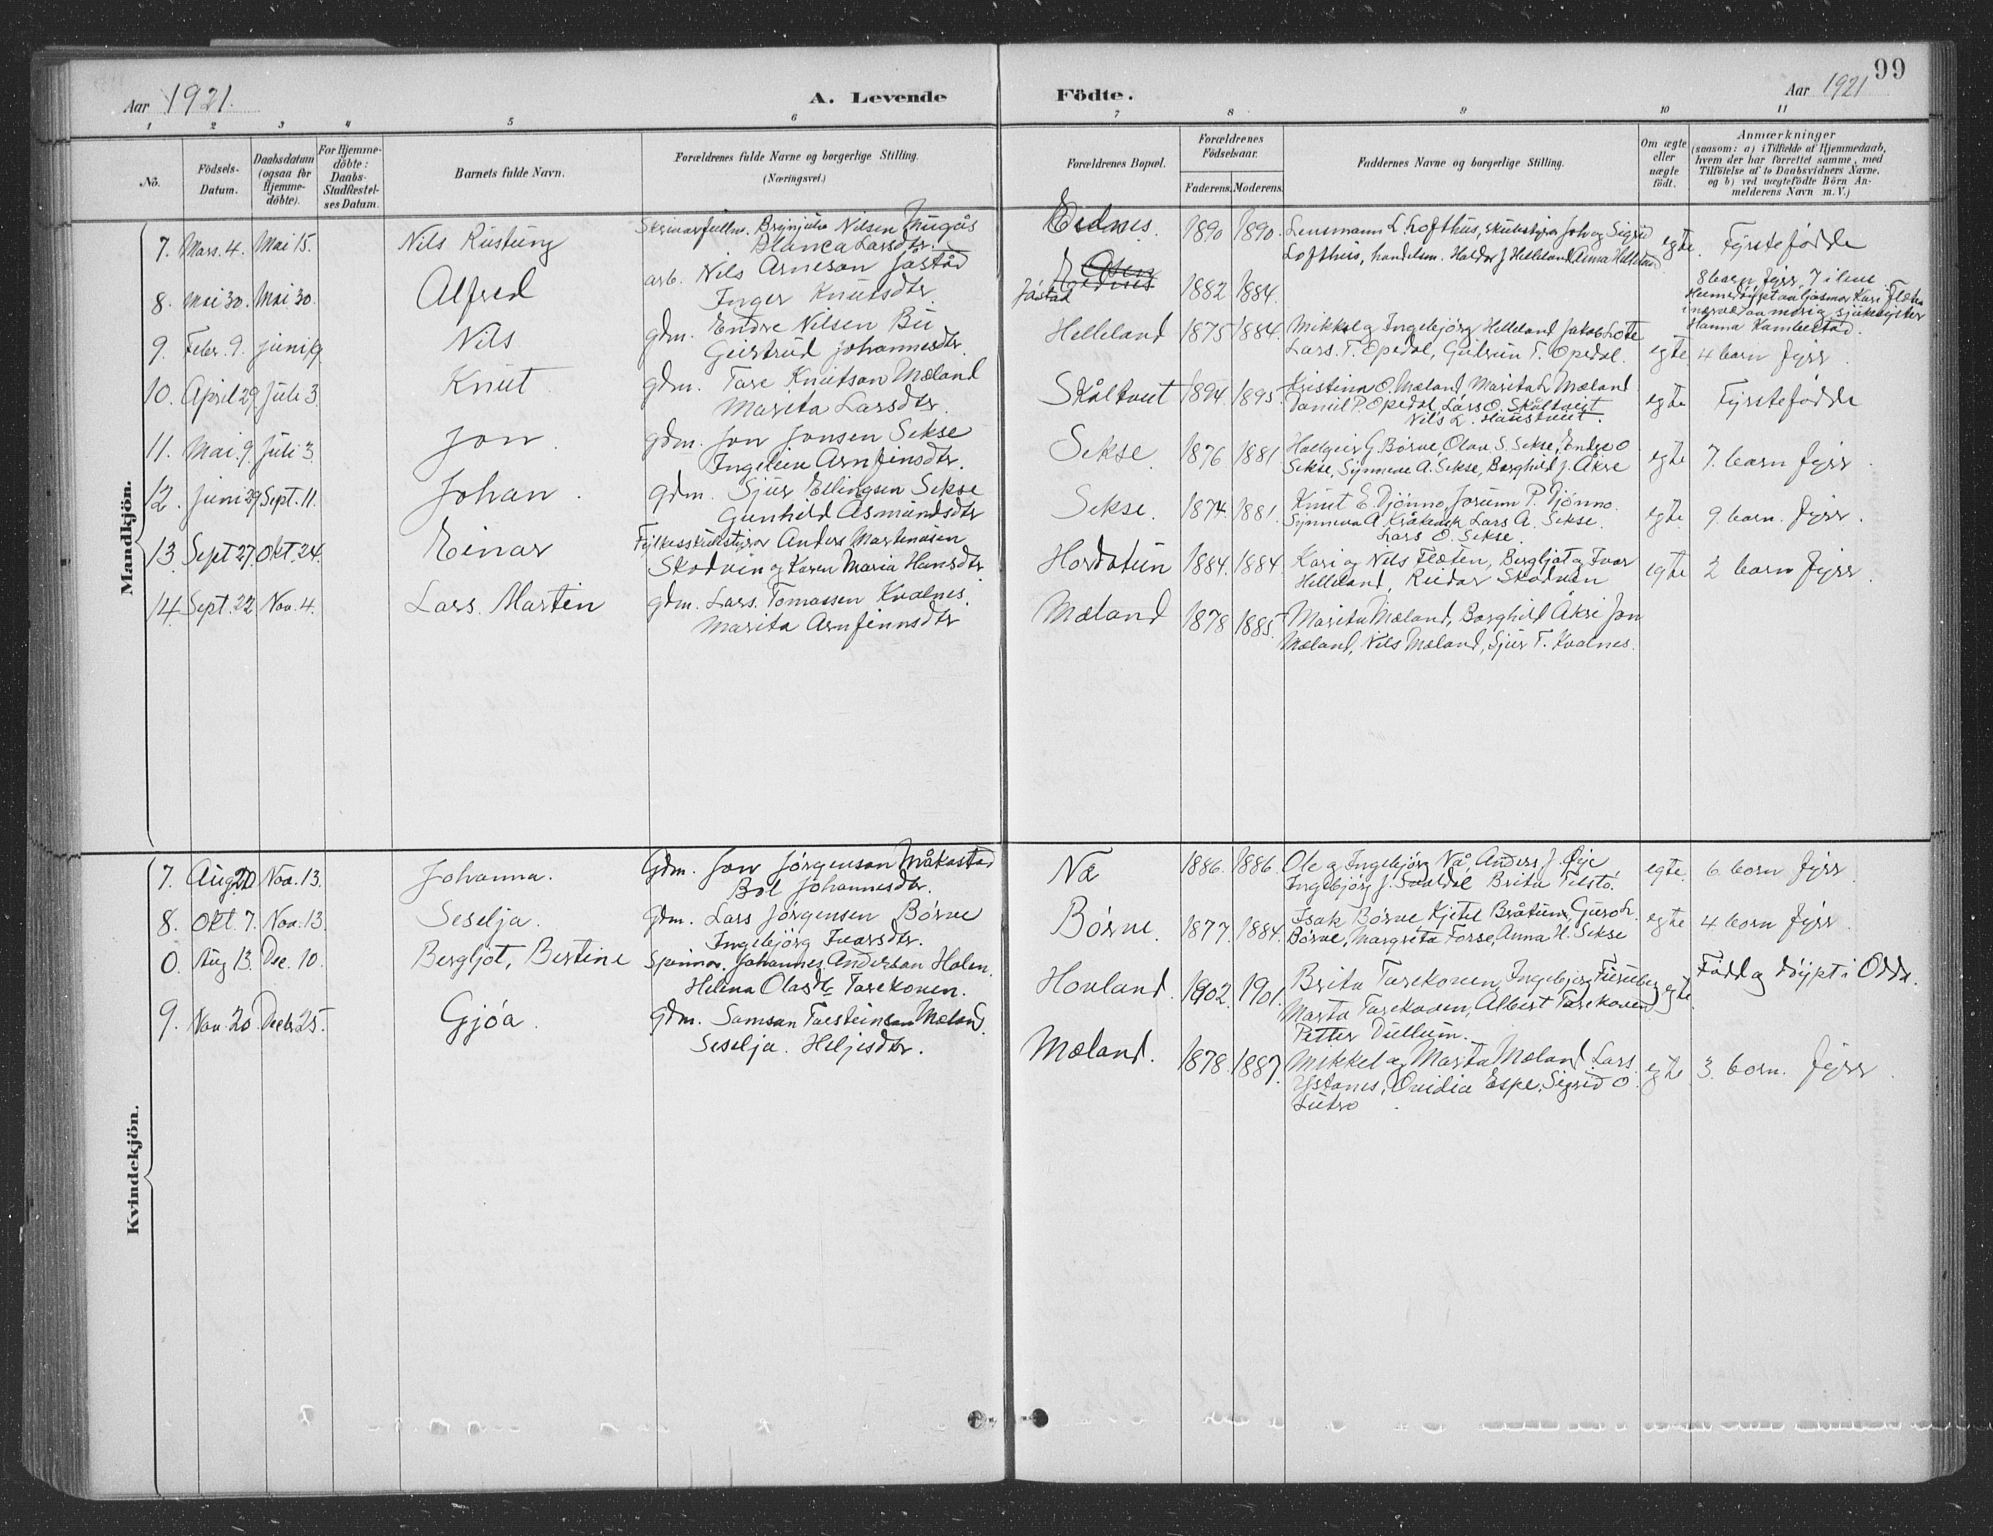 99
Aar 1921. A. Levende Födte. Aar 1921
1 2 3 4 5 6 7 8 9 10 11
No.
Födsels-
Datum.
Daabsdatum
(ogsaa for
Hjemme-
döbte).
For Hjemme-
döbte:
Daabs-
Stadfæstel-
ses Datum.
Barnets fulde Navn.
Forældrenes fulde Navne og borgerlige Stilling.
(Næringsvei.)
Forældrenes Bopæl.
Forældrenes
Födselsaar.
Faderens. Moderens.
Faddernes Navne og borgerlige Stilling.
Om ægte
eller
uægte
födt.
Anmærkninger
(saasom: a) i Tilfælde af Hjemmedaab,
hvem der har forrettet samme, med
Tilföielse af to Daabsvidners Navne,
og b) ved uægtefödte Börn An-
melderens Navn m. V.)
Mandkjön.
7. Mars. 4. Mai 15. Nils Rustung
Brynjulv Nilsen
Blanca Larsdtr.
Eidnes. 1890 1890.
Lensmann L Lofthus, skulestyrar Joh og Sigrid
Lofthus, handelsm. Haldor J Helleland, Anna Helleland
egte. Fyrstefødde
8. Mai 30. Mai 30. Alfred
arb. Nils Arneson Jåstad
Inger Knutsdtr.
Jåstad 1882 1884.
8 born fyrr, 7 i live
Hanna Kambestad.
9. Febr. 9. juni 19. Nils
gdm. Endre Nilsen Bu
Geirtrud Johannesdtr.
Helleland 1875 1884.
Mikkel og Ingebjørg Helleland, Jakob Lote
Lars. T. Opedal, Gudrun T. Opedal.
egte 4 born fyrr.
10. April 29 Juli 3. Knut
gdm. Tore Knutson Mæland
Marita Larsdtr.
Skåltveit 1894. 1895.
Kristina O. Mæland, Marita L. Mæland
Daniel P. Opedal, Lars O. Skåltveit
Nils L. Haustveit
egte Fyrstefødde
11. Mai. 9. Juli 3. Jon.
gdm. Jon Jonsen Sekse
Ingilein Arnfinsdtr.
Sekse. 1876 1881
Hallgeir G. Børve, Olav S. Sekse, Endre O
Sekse, Synneve A. Sekse, Borghild J. Åkre
egte 7. born fyrr.
12. juni 29 Sept. 11. Johan.
gdm. Sjur Ellingsen Sekse
Gunhild Asmundsdtr
Sekse. 1874. 1881.
Knut E. Djønno, Jorunn P. Djønno.
Synneva A. Lars A. Sekse.
Lars O. Sekse.
egte 9. born. fyrr.
13. Sept. 27. Okt. 24. Einar
Fylkesskulestyrar Anders Martinusen
Skodvin og Karen Maria Hansdtr.
Hordatun 1884. 1884.
Kari og Nils Flæten, Bergljot og Ivar
Helleland, Reidar Skodvin
egte 2 born fyrr.
14. Sept. 22 Nov. 4. Lars. Martin
gdm. Lars. Tomassen Kvalnes.
Marita Arnfinnsdtr
Mæland 1878 1885.
Marita Mæland, Borghild Åkre Jon
Mæland, Nils Mæland, Sjur T. Kvalnes.
Kvindekjön.
7. Aug 20 Nov. 13. Johanna.
Gdm. Jon Jørgenson Måkastad
Bol Johannesdtr.
Na 1886. 1886.
Ole og Ingebjørg Nå, Anders J. Øye
Ingebjørg J. Brita Tilstö.
egte. 6. born fyrr.
8. Okt. 7. Nov. 13. Seselja.
Gdm. Lars Jørgensen Børve
Ingebjørg Ivarsdtr.
Børve. 1877. 1884.
Isak Børve, Kjetil Bråtun, Guro L.
Børve, Margreta Forse, Anna H. Sekse
egte 4 born fyrr.
0. Aug 13. Dec. 10. Bergljot, Bertine
Johannes Anderson Holen.
Helena Olasdtr Tarekonen.
Hovland. 1902. 1901.
Brita Tarekonen, Ingebjørg
Marta Tarekonen, Albert Tarekonen
Petter Dullum.
egte. Fødd og døypt i Odda.
9. Nov. 20 Decbr 25. Gjöa.
gdm. Samson Torsteinson Mæland.
Seselja. Heljesdtr.
Mæland. 1878. 1887.
Mikkel og Marta Mæland, Lars
Ystanes, Ovidia Espe, Sigrid O.
Lutro.
egte 3. born. fyrr.